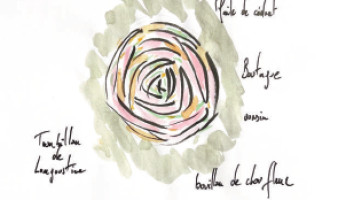 Huile de cédrat
Boutargue
oursin
Tourbillon
de
Langoustine
bouillon de chou fleur